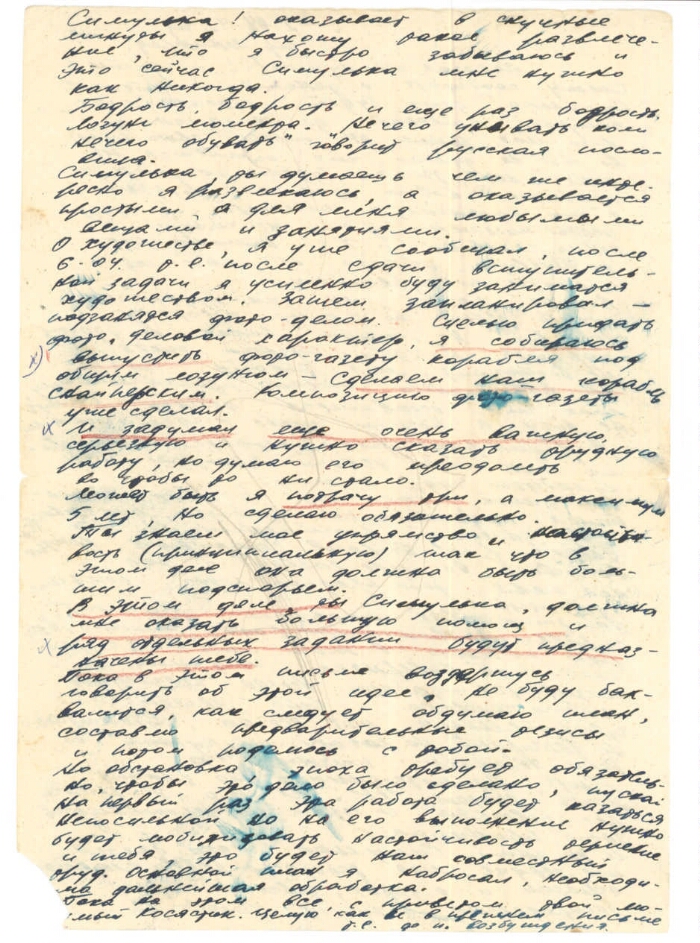 Симулька! оказывает в скучные
минуты я нахожу такое развлече-
ние, что я быстро забываюсь и
это сейчас Симулька мне нужно
как никогда.
Бодрость, бодрость и еще раз бодрость
лозунг момента. Нечего унывать коли
нечего обувать" говорит русская посло-
вица.
Симулька, ты думаешь чем же инте-
ресно я развлекаюсь, а оказывается
простыми, а для меня любимыми
вещами и занятиями.
О художестве, я уже сообщал, после
6.04. т.е. после сдачи вступитель-
ной задачи я усиленно буду заниматся
художеством. Затем запланировал –
подзанятся фото-делом. Сцелью придать
фото, деловой характер, я собираюсь
х) выпустить фото-газету корабля под
общим лозунгом – сделаем наш корабль
снайперским. Композицию фото-газеты
уже сделал.
х И задумал еще очень важную,
серьезную и нужно сказать трудную
работу, но думаю его преодолть
во чтобы то ни стало.
Может быть я потрачу три, а максимум
5 лет, но сделаю обязательно.
Ты знаеш мое упрямство и настойчи-
вость (принципиальную) так что в
этом деле она должна быть боль-
шим подспорьем.
В этом деле, ты Симулька, должна
мне оказать большую помощ и
х ряд отдельных заданий будут предназ-
начены тебе.
Пока в этом письме воздержусь
говорить об этой идее, не буду бах-
валится, как следует обдумаю план,
составлю предварительные тезисы
и потом поделюсь с тобой.
Но обстановка эпоха требует обязатель-
но, чтобы это дело было сделано, пускай
на первый раз эта работа будет казаться
непосильной но на его выполнение нужно
будет мобилизовать настойчивость терпение
и тебя, это будет наш совместный
труд. Основной план я набросал, необходи-
ма дальнейшая обработка.
Пока на этом все с приветом твой лю-
бимый Косястик. Целую, как и в прежнем письме
т.е. до н. возбуждения.